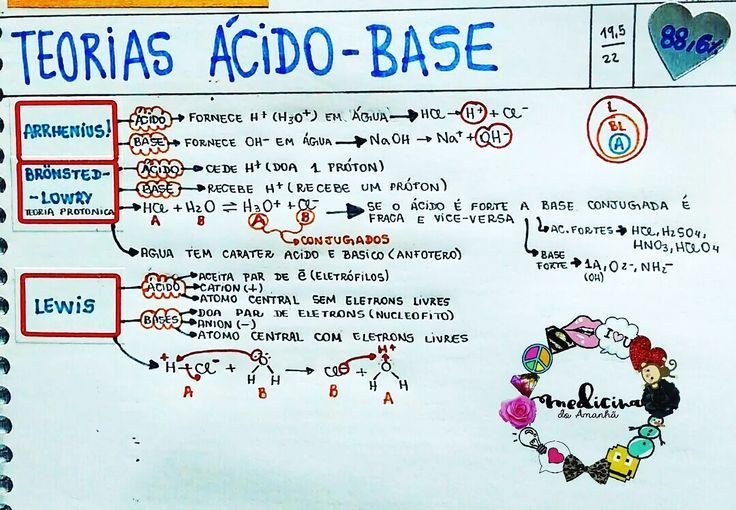 TEORIAS ÁCIDO-BASE
19,5
22
88,6%
ARRHENIUS!
ÁCIDO → FORNECE H+ (H3O+) EM ÁGUA → HCl → H+ + Cl-
BASE → FORNECE OH- EM ÁGUA → NaOH → Na+ + OH-
L
BL
A
BRÖNSTED-
-LOWRY
TEORIA PROTONICA
ÁCIDO → CEDE H+ (DOA 1 PRÓTON)
BASE → RECEBE H+ (RECEBE UM PRÓTON)
HCl + H2O ⇌ H3O+ + Cl- → SE O ÁCIDO É FORTE A BASE CONJUGADA É
FRACA E VICE-VERSA
A B A B
CONJUGADOS
AC. FORTES → HCl, H2SO4,
HNO3, HClO4
BASE
FORTE → 1A, O2-, NH2-
(OH)
AGUA TEM CARATER ACIDO E BASICO (ANFOTERO)
LEWIS
ÁCIDO → ACEITA PAR DE ē (ELETRÓFILOS)
CATION (+)
ATOMO CENTRAL SEM ELETRONS LIVRES
BASES → DOA PAR DE ELETRONS (NUCLEOFITO)
ANION (-)
ATOMO CENTRAL COM ELETRONS LIVRES
H+ Cl- + O H H → Cl- + H+ O H H
A B B A
I ♥ U
medicina
do Amanhã